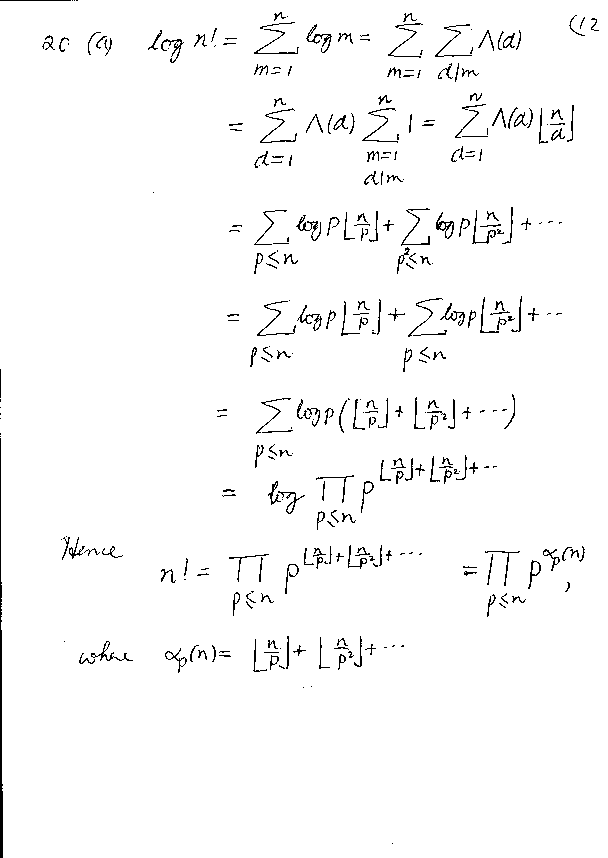 20 (a) log n! = ∑_{m=1}^{n} log m = ∑_{m=1}^{n} ∑_{d|m} Λ(d) (12
= ∑_{d=1}^{n} Λ(d) ∑_{m=1, d|m}^{n} 1 = ∑_{d=1}^{n} Λ(d) ⌊n/d⌋
= ∑_{p≤n} log p ⌊n/p⌋ + ∑_{p²≤n} log p ⌊n/p²⌋ + ···
= ∑_{p≤n} log p ⌊n/p⌋ + ∑_{p≤n} log p ⌊n/p²⌋ + ··
= ∑_{p≤n} log p (⌊n/p⌋ + ⌊n/p²⌋ + ···)
= log ∏_{p≤n} p^{⌊n/p⌋ + ⌊n/p²⌋ + ··}
Hence n! = ∏_{p≤n} p^{⌊n/p⌋ + ⌊n/p²⌋ + ···} = ∏_{p≤n} p^{α_p(n)},
where α_p(n) = ⌊n/p⌋ + ⌊n/p²⌋ + ···